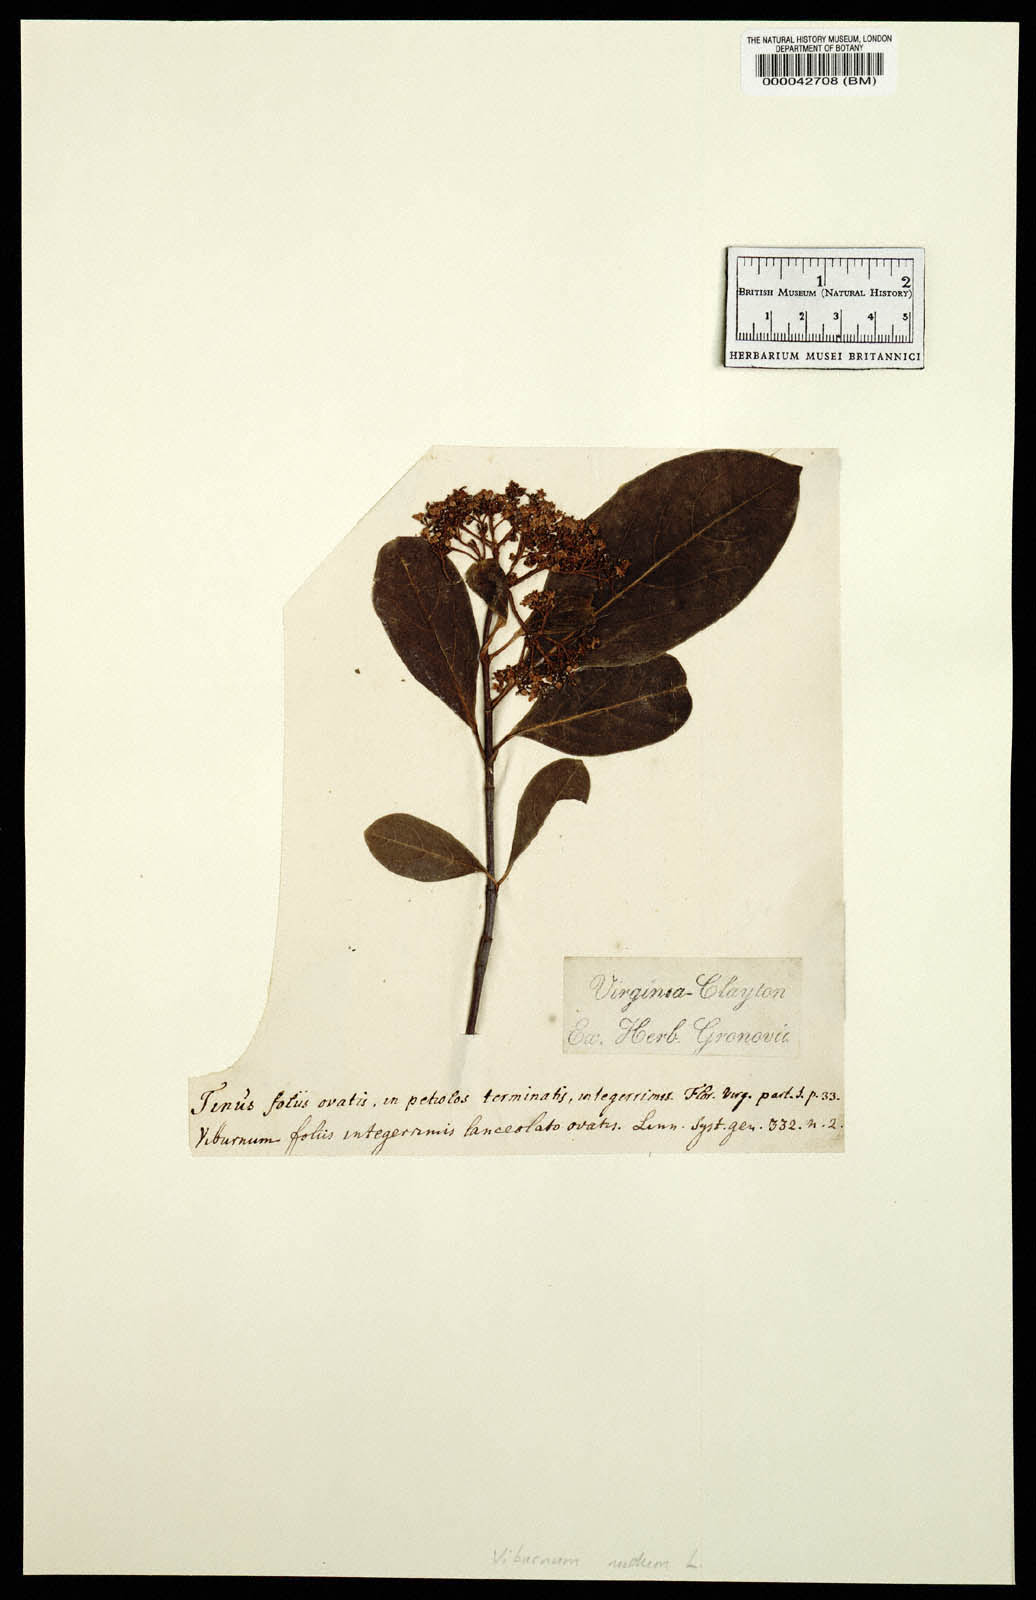 THE NATURAL HISTORY MUSEUM, LONDON
DEPARTMENT OF BOTANY
000042708 (BM)
1 2
BRITISH MUSEUM (NATURAL HISTORY)
1 2 3 4 5
HERBARIUM MUSEI BRITANNICI
Virginia-Clayton
Ex. Herb. Gronovii
Tinus foliis ovatis, in petiolos terminatis, integerrimis. Flor. Virg. part. 1. p. 33.
Viburnum foliis integerrimis lanceolato ovatis. Linn. Syst. gen. 332. n. 2.
Viburnum nudum L.